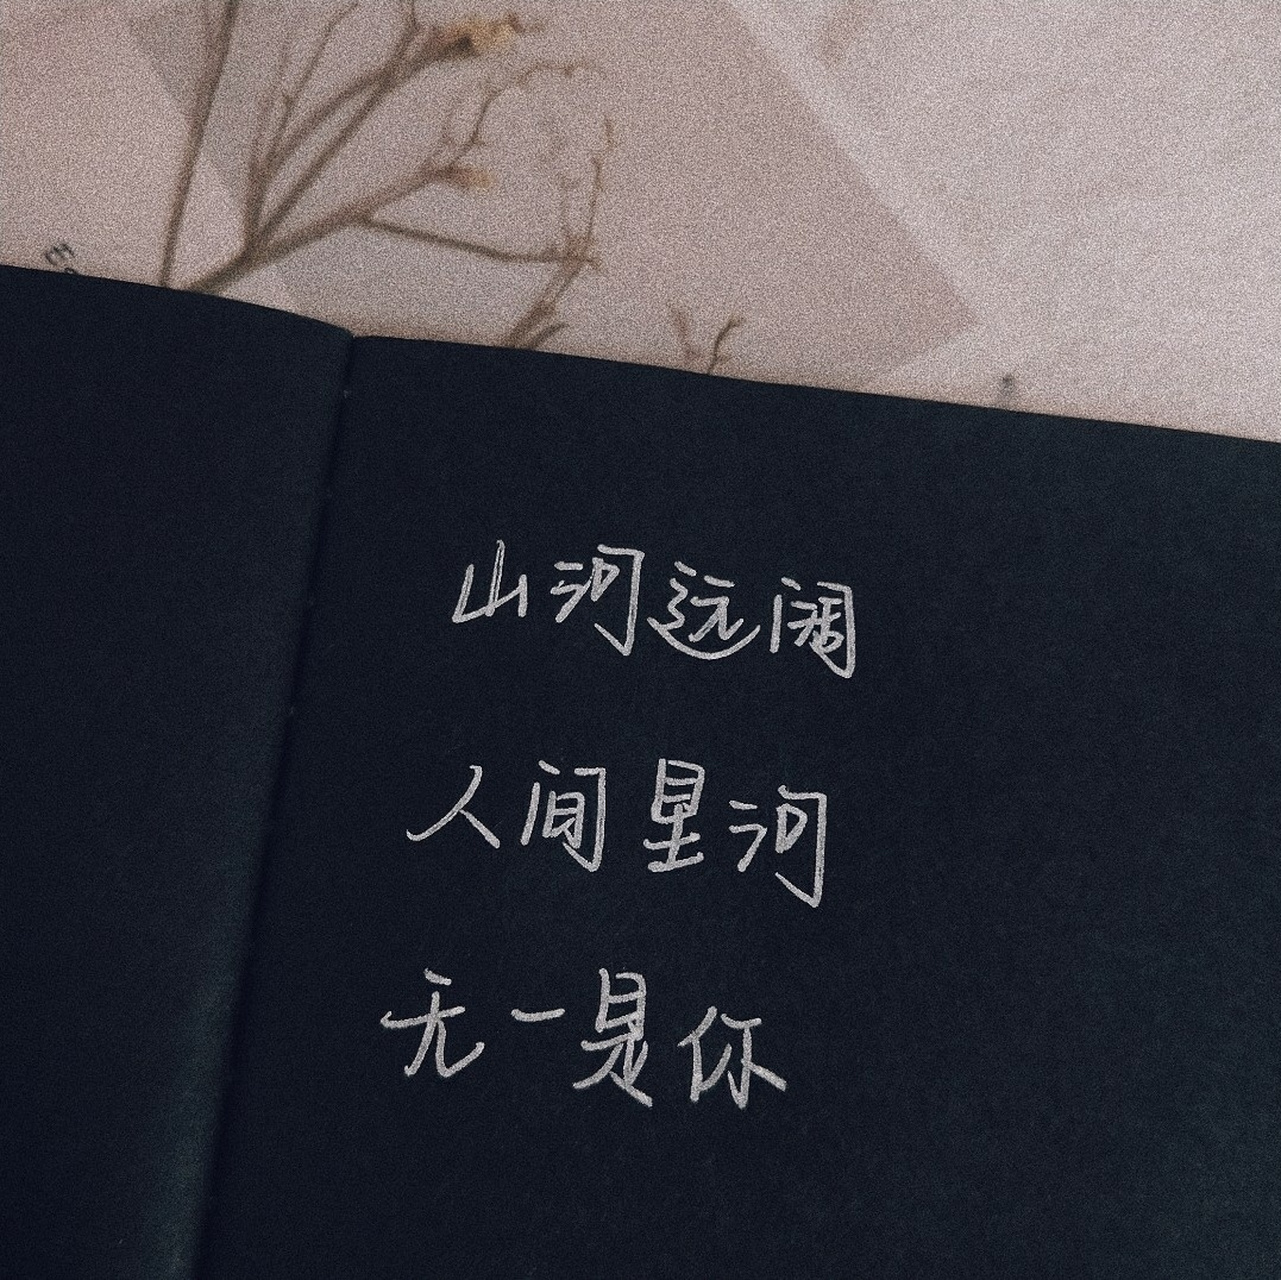 山河远阔
人间星河
无一是你